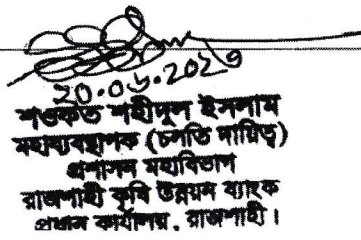 20.06.2023
শওকত শহীদুল ইসলাম
মহাব্যবস্থাপক (চলতি দায়িত্ব)
প্রশাসন মহাবিভাগ
রাজশাহী কৃষি উন্নয়ন ব্যাংক
প্রধান কার্যালয়, রাজশাহী।